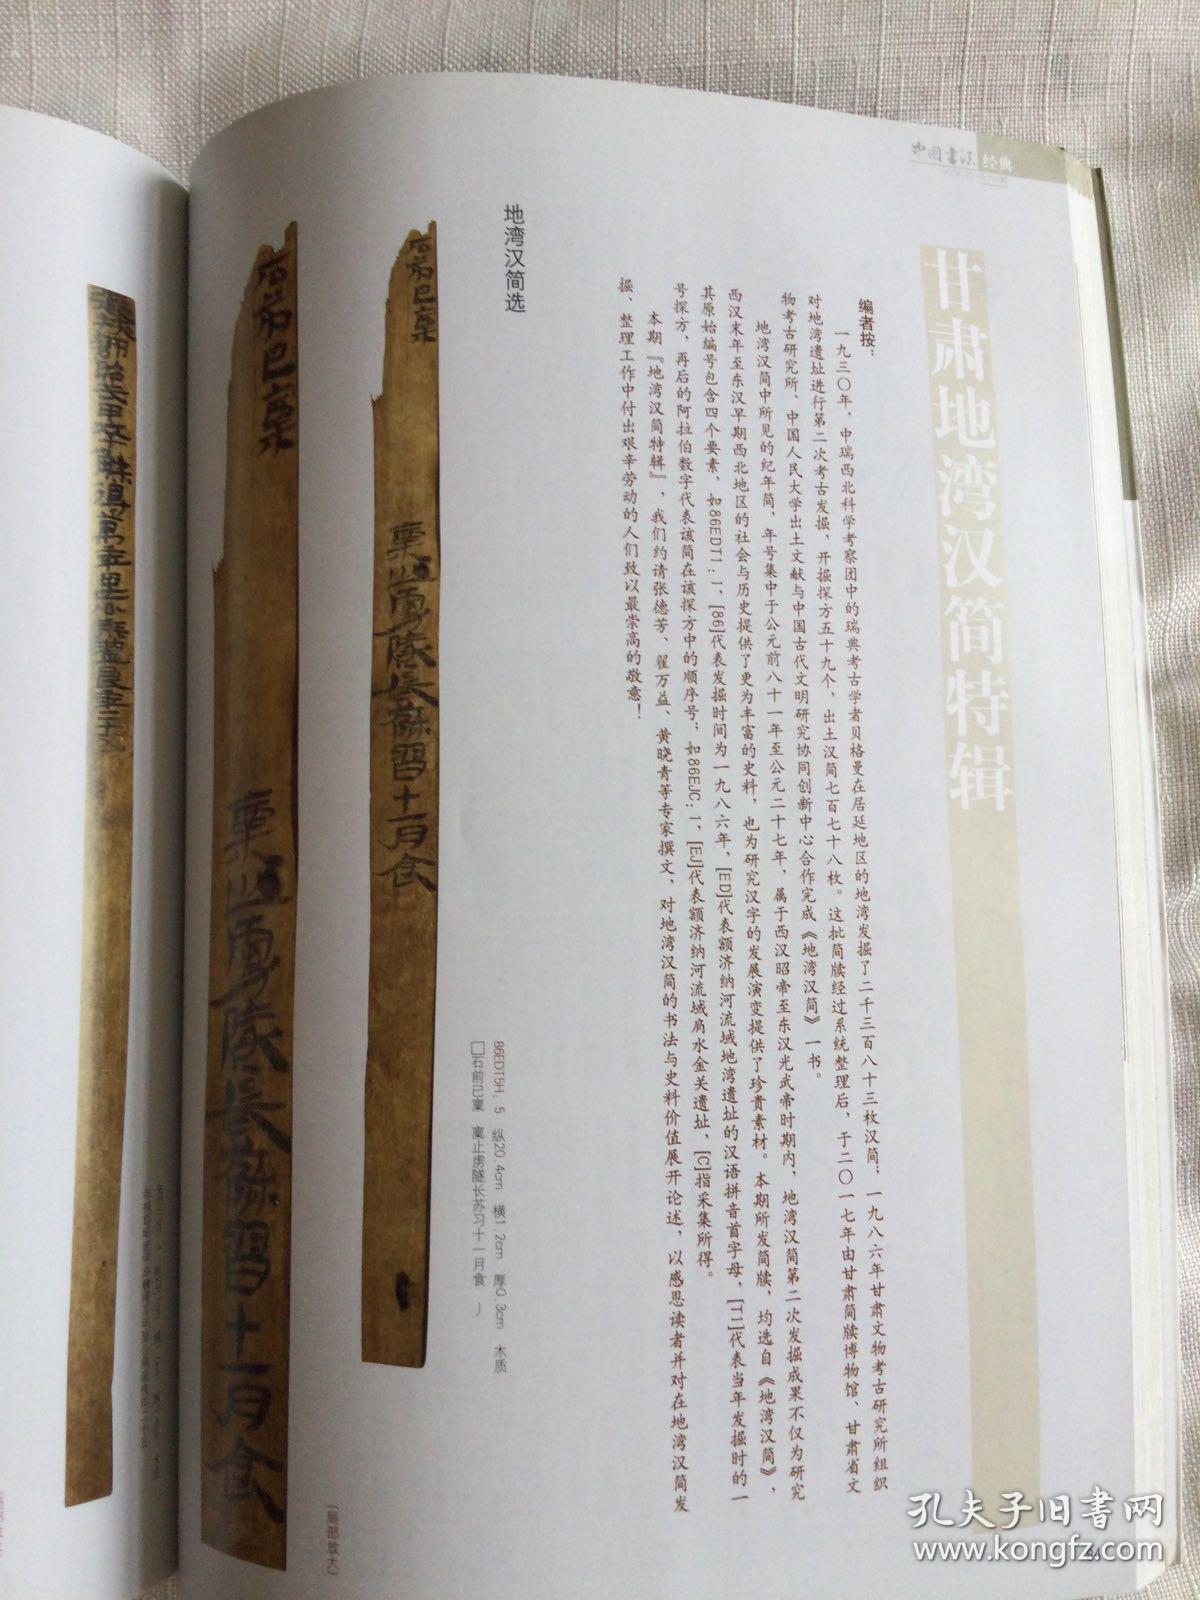 中国书法 经典
甘肃地湾汉简特辑
编者按：
一九三〇年，中瑞西北科学考察团中的瑞典考古学者贝格曼在居延地区的地湾发掘了二千三百八十三枚汉简；一九八六年甘肃文物考古研究所组织
对地湾遗址进行第二次考古发掘，开掘探方五十九个，出土汉简七百七十八枚。这批简牍经过系统整理后，于二〇一七年由甘肃简牍博物馆、甘肃省文
物考古研究所、中国人民大学出土文献与中国古代文明研究协同创新中心合作完成《地湾汉简》一书。
地湾汉简中所见的纪年简，年号集中于公元前八十一年至公元二十七年，属于西汉昭帝至东汉光武帝时期内，地湾汉简第二次发掘成果不仅为研究
西汉末年至东汉早期西北地区的社会与历史提供了更为丰富的史料，也为研究汉字的发展演变提供了珍贵素材。本期所发简牍，均选自《地湾汉简》，
其原始编号包含四个要素，如86EDT1：一，[86]代表发掘时间为一九八六年，[ED]代表额济纳河流域地湾遗址的汉语拼音首字母，[T1]代表当年发掘时的一
号探方，再后的阿拉伯数字代表该简在该探方中的顺序号；如86EJC：一，[EJ]代表额济纳河流域肩水金关遗址，[C]指采集所得。
本期『地湾汉简特辑』，我们约请张德芳、翟万益、黄晓青等专家撰文，对地湾汉简的书法与史料价值展开论述，以感恩读者并对在地湾汉简发
掘、整理工作中付出艰辛劳动的人们致以最崇高的敬意！
地湾汉简选
86EDT5H：5 纵20.4cm 横1.2cm 厚0.3cm 木质
□石前已稟 稟止虏隧长苏习十一月食 丿
石前已稟 稟止虏隧长苏习十一月食
（局部放大）
孔夫子旧书网
www.kongfz.com